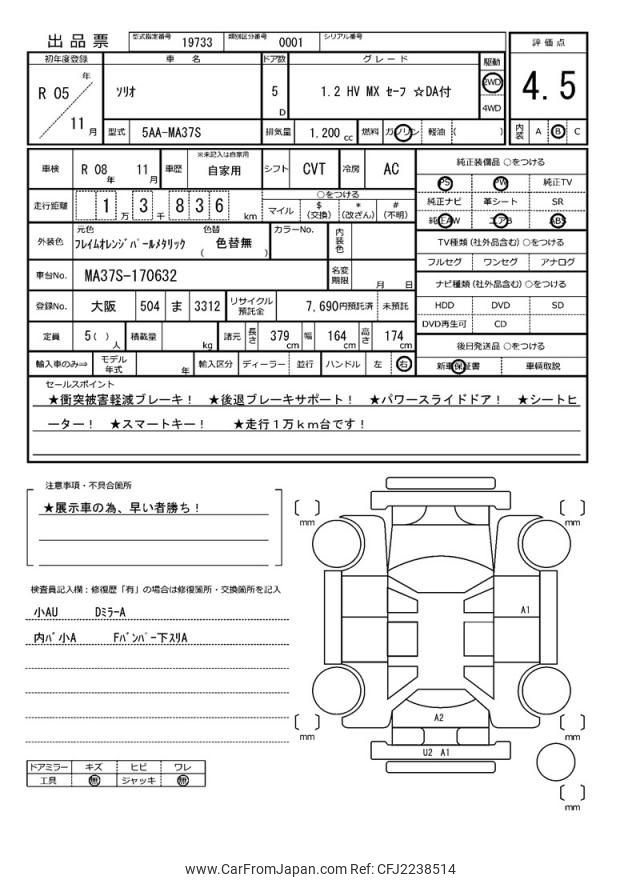 出品票 型式指定番号 19733 類別区分番号 0001 シリアル番号
評価点
初年度登録 車名 ドア数 グレード 駆動
R 05 年 11 月 ソリオ 5 D 1.2 HV MX セーフ ☆DA付 2WD 4WD
4.5
型式 5AA-MA37S 排気量 1,200 cc 燃料 ガソリン 軽油 ( )
内装 A B C
車検 R 08 年 11 月 車歴 ※未記入は自家用 自家用 シフト CVT 冷房 AC
純正装備品 ○をつける
PS PW 純正TV
純正ナビ 革シート SR
純正AW エアB ABS
走行距離 1 万 3 千 8 3 6 km
○をつける
マイル $ (交換) * (改ざん) # (不明)
外装色 元色 フレイムオレンジパールメタリック 色替 ( 色替無 ) カラーNo. 内装色
TV種類 (社外品含む) ○をつける
フルセグ ワンセグ アナログ
車台No. MA37S-170632 名変期限 月 日
ナビ種類 (社外品含む) ○をつける
HDD DVD SD
DVD再生可 CD
登録No. 大阪 504 ま 3312 リサイクル預託金 7,690円預託済 未預託
定員 5( ) 人 積載量 kg 諸元 長さ 379 cm 幅 164 cm 高さ 174 cm
後日発送品 ○をつける
新車保証書 車輌取説
輸入車のみ⇒ モデル年式 年 輸入区分 ディーラー 並行 ハンドル 左 右
セールスポイント
★衝突被害軽減ブレーキ! ★後退ブレーキサポート! ★パワースライドドア! ★シートヒ
ーター! ★スマートキー! ★走行1万km台です!
注意事項・不具合箇所
★展示車の為、早い者勝ち!
検査員記入欄:修復歴「有」の場合は修復箇所・交換箇所を記入
小AU DミラーA
内パ小A Fバンパー下スリA
ドアミラー キズ ヒビ ワレ
工具 無 ジャッキ 無
mm
mm
A1
A2
U2 A1
mm
mm
mm
www.CarFromJapan.com Ref: CFJ2238514